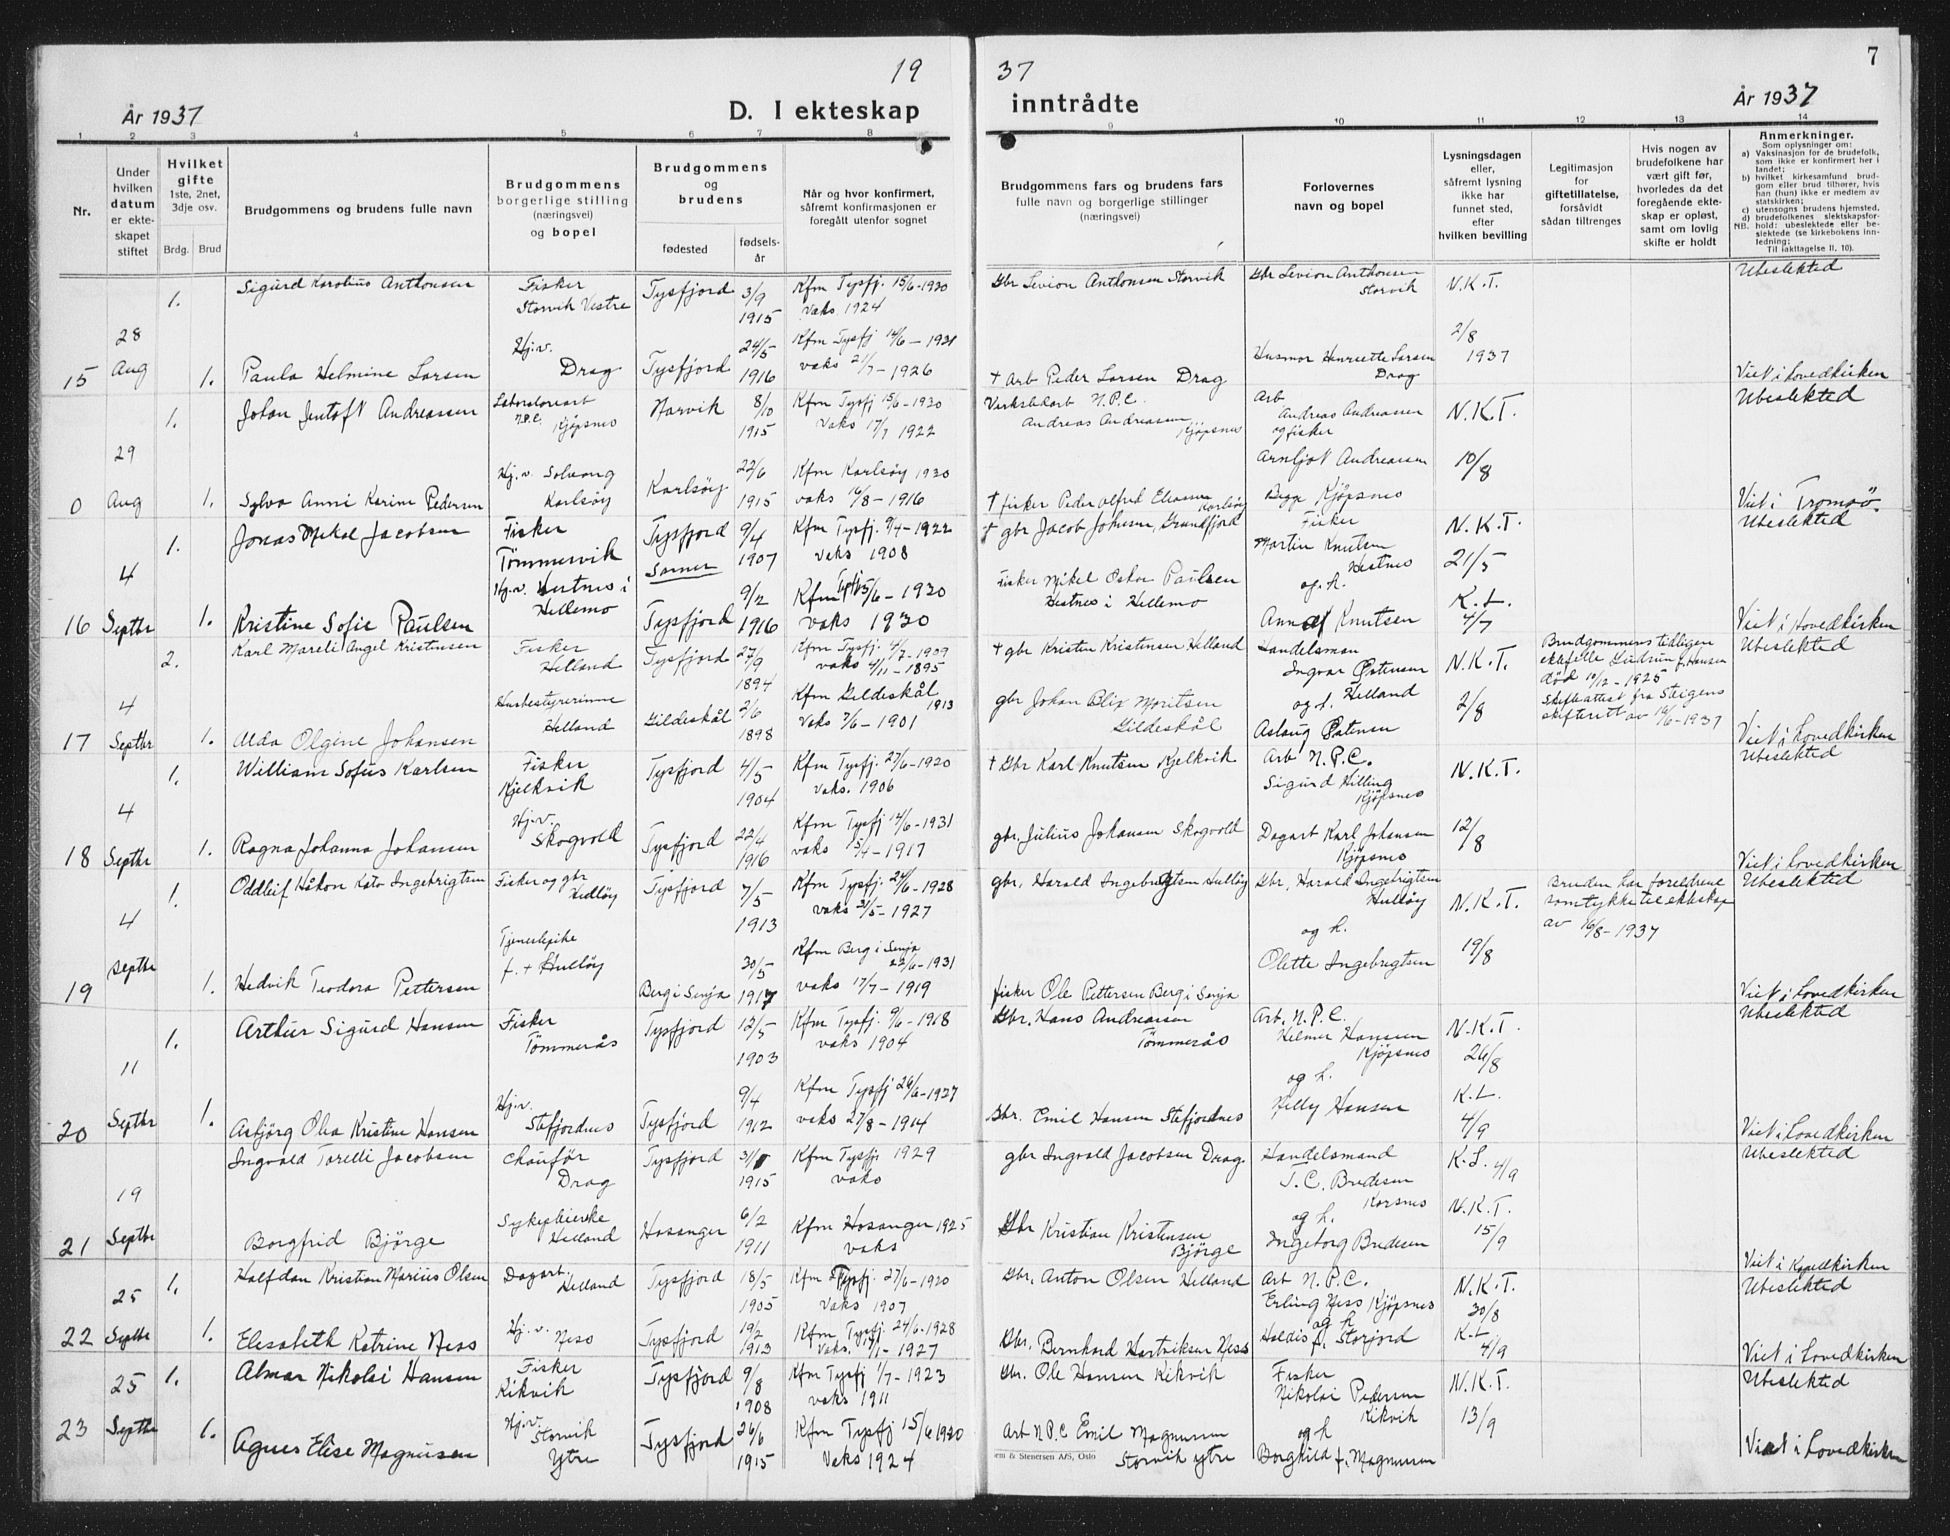 19
37
7
År 1937
D. I ekteskap
inntrådte
År 1937
1 2 3 4 5 6 7 8 9 10 11 12 13 14
Nr.
Under hvilken datum er ekte-skapet stiftet
Hvilket gifte
1ste, 2net, 3dje osv.
Brdg. Brud
Brudgommens og brudens fulle navn
Brudgommens borgerlige stilling (næringsvei) og bopel
Brudgommens og brudens
fødested
fødsels-år
Når og hvor konfirmert, såfremt konfirmasjonen er foregått utenfor sognet
Brudgommens fars og brudens fars fulle navn og borgerlige stillinger (næringsvei)
Forlovernes navn og bopel
Lysningsdagen eller, såfremt lysning ikke har funnet sted, efter hvilken bevilling
Legitimasjon for giftetillatelse, forsåvidt sådan tiltrenges
Hvis nogen av brudefolkene har vært gift før, hvorledes da det foregående ekte-skap er opløst, samt om lovlig skifte er holdt
Anmerkninger.
Som oplysninger om:
a) Vaksinasjon for de brudefolk, som ikke er konfirmert her i landet;
b) hvilket kirkesamfund brud-gom eller brud tilhører, hvis han (hun) ikke er medlem av statskirken;
c) utensogns brudens hjemsted.
d) brudefolkenes slektskapsfor-
NB. hold: ubeslektede eller be-slektede (se kirkebokens inn-ledning;
Til iakttagelse II, 10).
1. Sigurd Karolius Anthonsen Fisker Storvik Vestre Tysfjord 3/9 1915 Kfm Tysfj. 15/6-1930 Vaks. 1924 Gbr Levion Anthonsen Storvik Gbr Levion Anthonsen Storvik N.K.T. Ubeslekted
15 28 Aug 1. Paula Helmine Larsen Hj.v. Drag Tysfjord 24/5 1916 Kfm Tysfj 14/6-1931 vaks 21/7-1926 + Arb Peder Larsen Drag Husmor Henriette Larsen Drag 2/8 1937 Viet i Hovedkirken
1. Johan Jentoft Andreassen Laboratoriearb N.P.C. Kjøpsnes Narvik 8/10 1915 Kfm Tysfj 15/6-1930 Vaks 17/7 1922 N.P.C. Andreas Andreassen Kjøpsnes Arb Andreas Andreassen og fisker N.K.T. Ubeslekted
0 29 Aug 1. Sylva Anni Karine Pedersen Hj.v. Karlsøy Karlsøy 22/6 1915 Kfm Karlsøy 1930 vaks 16/8-1916 + fisker Peder Alfred Karlsøy Arnljot Andreassen Begge Kjøpsnes 10/8 Viet i Tromsö.
1. Jonas Mikal Jacobsen Fisker Tömmervik Tysfjord Samer 9/4 1907 Kfm Tysfj. 9/7-1922 vaks 1908 + gbr Jacob Johnsen, Grundfjord Fisker Martin Knutsen Hestnes N.K.T. 21/5 Ubeslekted
16 4 Septbr 1. Kristine Sofie Paulsen Hj.v. Hestnes i Hellemo Tysfjord 9/2 1916 Kfm Tysfj 15/6-1930 vaks 1930 Fisker Mikel Oskar Paulsen Hestnes i Hellemo og h. Anna Knutsen K.L. 4/7 Viet i Hovedkirken
2. Karl Mareli Angel Kristensen Fisker Helland Tysfjord 27/9 1894 Kfm Tysfj. 4/7-1909 vaks 4/11-1895 + gbr Kristen Kristensen Helland Handelsman Ingvar Østensen Helland N.K.T. Brudgommens tidligere ektefelle Gudrun f. Hansen död 10/12-1925 Skifteattest fra Steigens skifterett av 16/6-1937 Ubeslekted
17 4 Septbr 1. Alda Olgine Johansen Husbestyrerinne Helland Gildeskål 2/6 1898 Kfm Gildeskål 1913 Vaks 7/6-1901 gbr Johan Blix Moritsen Gildeskål og f. Aslaug Østensen 2/8 Viet i Hovedkirken
1. William Sofus Karlsen Fisker Kjelkvik Tysfjord 4/5 1904 Kfm Tysfj. 27/6-1920 Vaks. 1906 + Gbr Karl Knutsen Kjelkvik Arb N.P.C. Sigurd Hilling Kjøpsnes N.K.T. Ubeslekted
18 4 Septbr 1. Ragna Johanna Johansen Hj.v. Skogvold Tysfjord 22/4 1916 Kfm Tysfj 14/6-1931 vaks 15/4-1917 gbr. Julius Johansen Skogvold Dagarb Karl Johansen Kjøpsnes 12/8 Viet i Hovedkirken
1. Oddleif Håkon Kato Ingebrigtsen Fisker og gbr Hulløy Tysfjord 7/5 1913 Kfm Tysfj. 24/6-1928 vaks 31/5-1927 gbr. Harald Ingebrigtsen Hulløy Gbr. Harald Ingebrigtsen Hulløy N.K.T. Bruden har foreldrene samtykke til ekteskap av 16/8-1937 Ubeslekted
19 4 septbr 1. Hedvik Teodora Pettersen Tjenestepike f. t Hulløy Berg i Senja 30/5 1917 Kfm Berg i Senja 22/6-1931 vaks 17/7-1919 fisker Ole Pettersen Berg i Senja og h. Olette Ingebrigtsen 19/8 Viet i Hovedkirken
1. Arthur Sigurd Hansen Fisker Tömmerås Tysfjord 12/5 1903 Kfm Tysfj. 9/6-1918 vaks 1904 Gbr. Hans Andreasen Tömmerås Arb. N.P.C. Helmer Hansen Kjøpsnes N.K.T. 26/8 Ubeslekted
20 11 Septbr 1. Asbjörg Olea Kristine Hansen Hj.v. Stefjordnes Tysfjord 9/4 1912 Kfm Tysfj 26/6-1927 vaks 27/8-1914 Gbr. Emil Hansen Stefjordnes og h. Nelly Hansen K.L. 4/9 Viet i Hovedkirken
Ingvald Torelli Jacobsen Chauför Drag Tysfjord 1915 Kfm Tysfj 1929 vaks gbr Ingvald Jacobsen Drag. Handelsmand T.C. Brudesen Korsnes K.L. 4/9 Ubeslekted
21 19 Septbr Borgfrid Bjørge Sykepleierske Helland Hosanger 6/2 1911 Kfm Hosanger 1925 vaks Gbr Kristian Kristensen Bjørge og h. Ingeborg Brudesen N.K.T. 15/9 Viet i Hovedkirken
1. Halfdan Kristian Marius Olsen Dagarb. Helland Tysfjord 18/5 1905 Kfm Tysfj. 27/6-1920 Vaks 1907 Gbr. Anton Olsen Helland Arb N.P.C. Erling Ness Kjøpsnes N.K.T. 30/8 Ubeslekted
22 25 Septbr 1. Elisabeth Katrine Ness Hj.v. Ness Tysfjord 19/2 1913 Kfm Tysfj. 24/6-1928 vaks. 1927 Gbr. Bernhard Hartviksen Ness og h Haldis f. Storjord K.L. 4/9 Viet i Hovedkirken
1. Almar Nikolai Hansen Fisker Kikvik Tysfjord 9/8 1908 Kfm Tysfj 1/7-1923 vaks 1911 Gbr. Ole Hansen Kikvik Fisker Nikolai Pedersen Kikvik N.K.T. Ubeslekted
23 25 Septbr 1. Agnes Elise Magnusen Hj.v. Storvik Ytre Tysfjord 26/6 1915 Kfm Tysfj 15/6 1930 Vaks 1924 Arb N.P.C Emil Magnussen Storvik ytre og h Borghild f. Magnussen 13/9 Viet i Hovedkirken
em & Stenersen A/S, Oslo